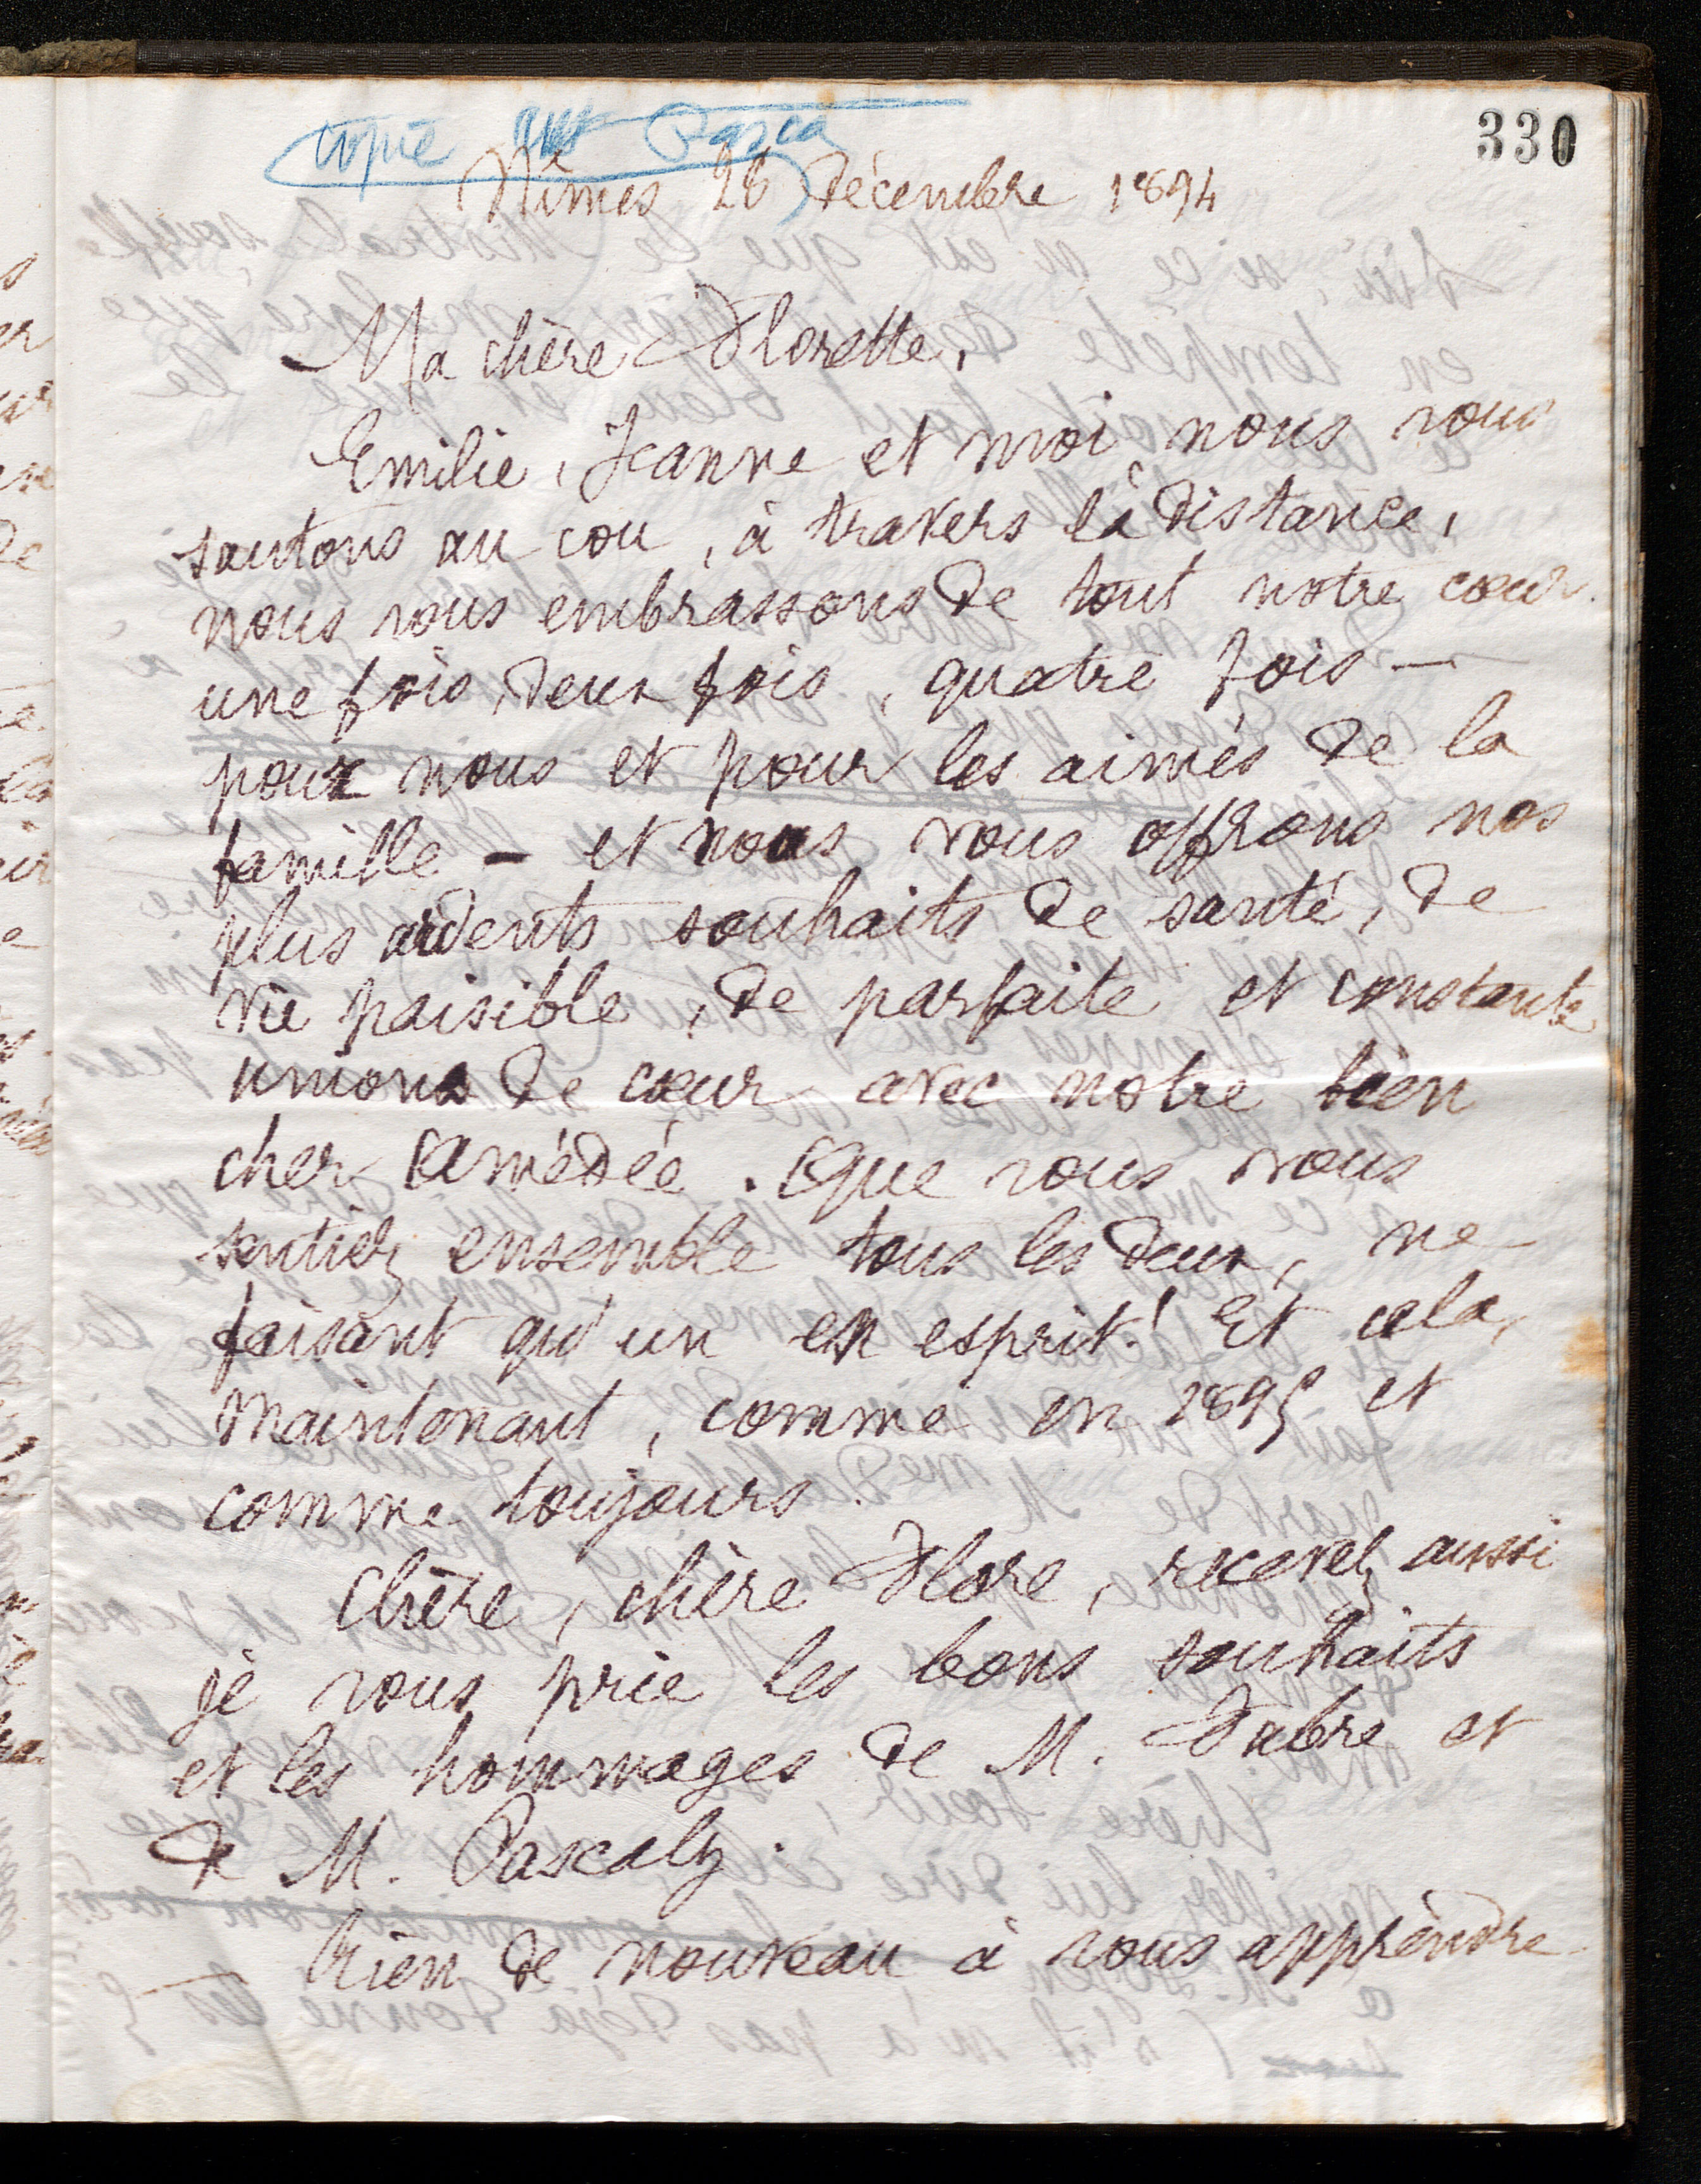 330
copié
Nîmes 28 Décembre 1894
Ma chère Florette,
Emilie, Jeanne et moi nous vous
sautons au cou, à travers la distance,
nous vous embrassons de tout notre cœur.
une fois, deux fois, quatre fois —
pour nous et pour les aimés de la
famille — et nous vous offrons nos
plus ardents souhaits de santé, de
vie paisible, de parfaite et constante
union de cœur avec notre bien
cher Amédée. Que vous vous
sentiez ensemble tous les deux, ne
faisant qu'un en esprit! Et cela,
maintenant, comme en 1895 et
comme toujours.
Chère, chère Flore, recevez aussi
je vous prie les bons souhaits
et les hommages de M. Fabre et
de M. Pascaly.
Rien de nouveau à vous apprendre